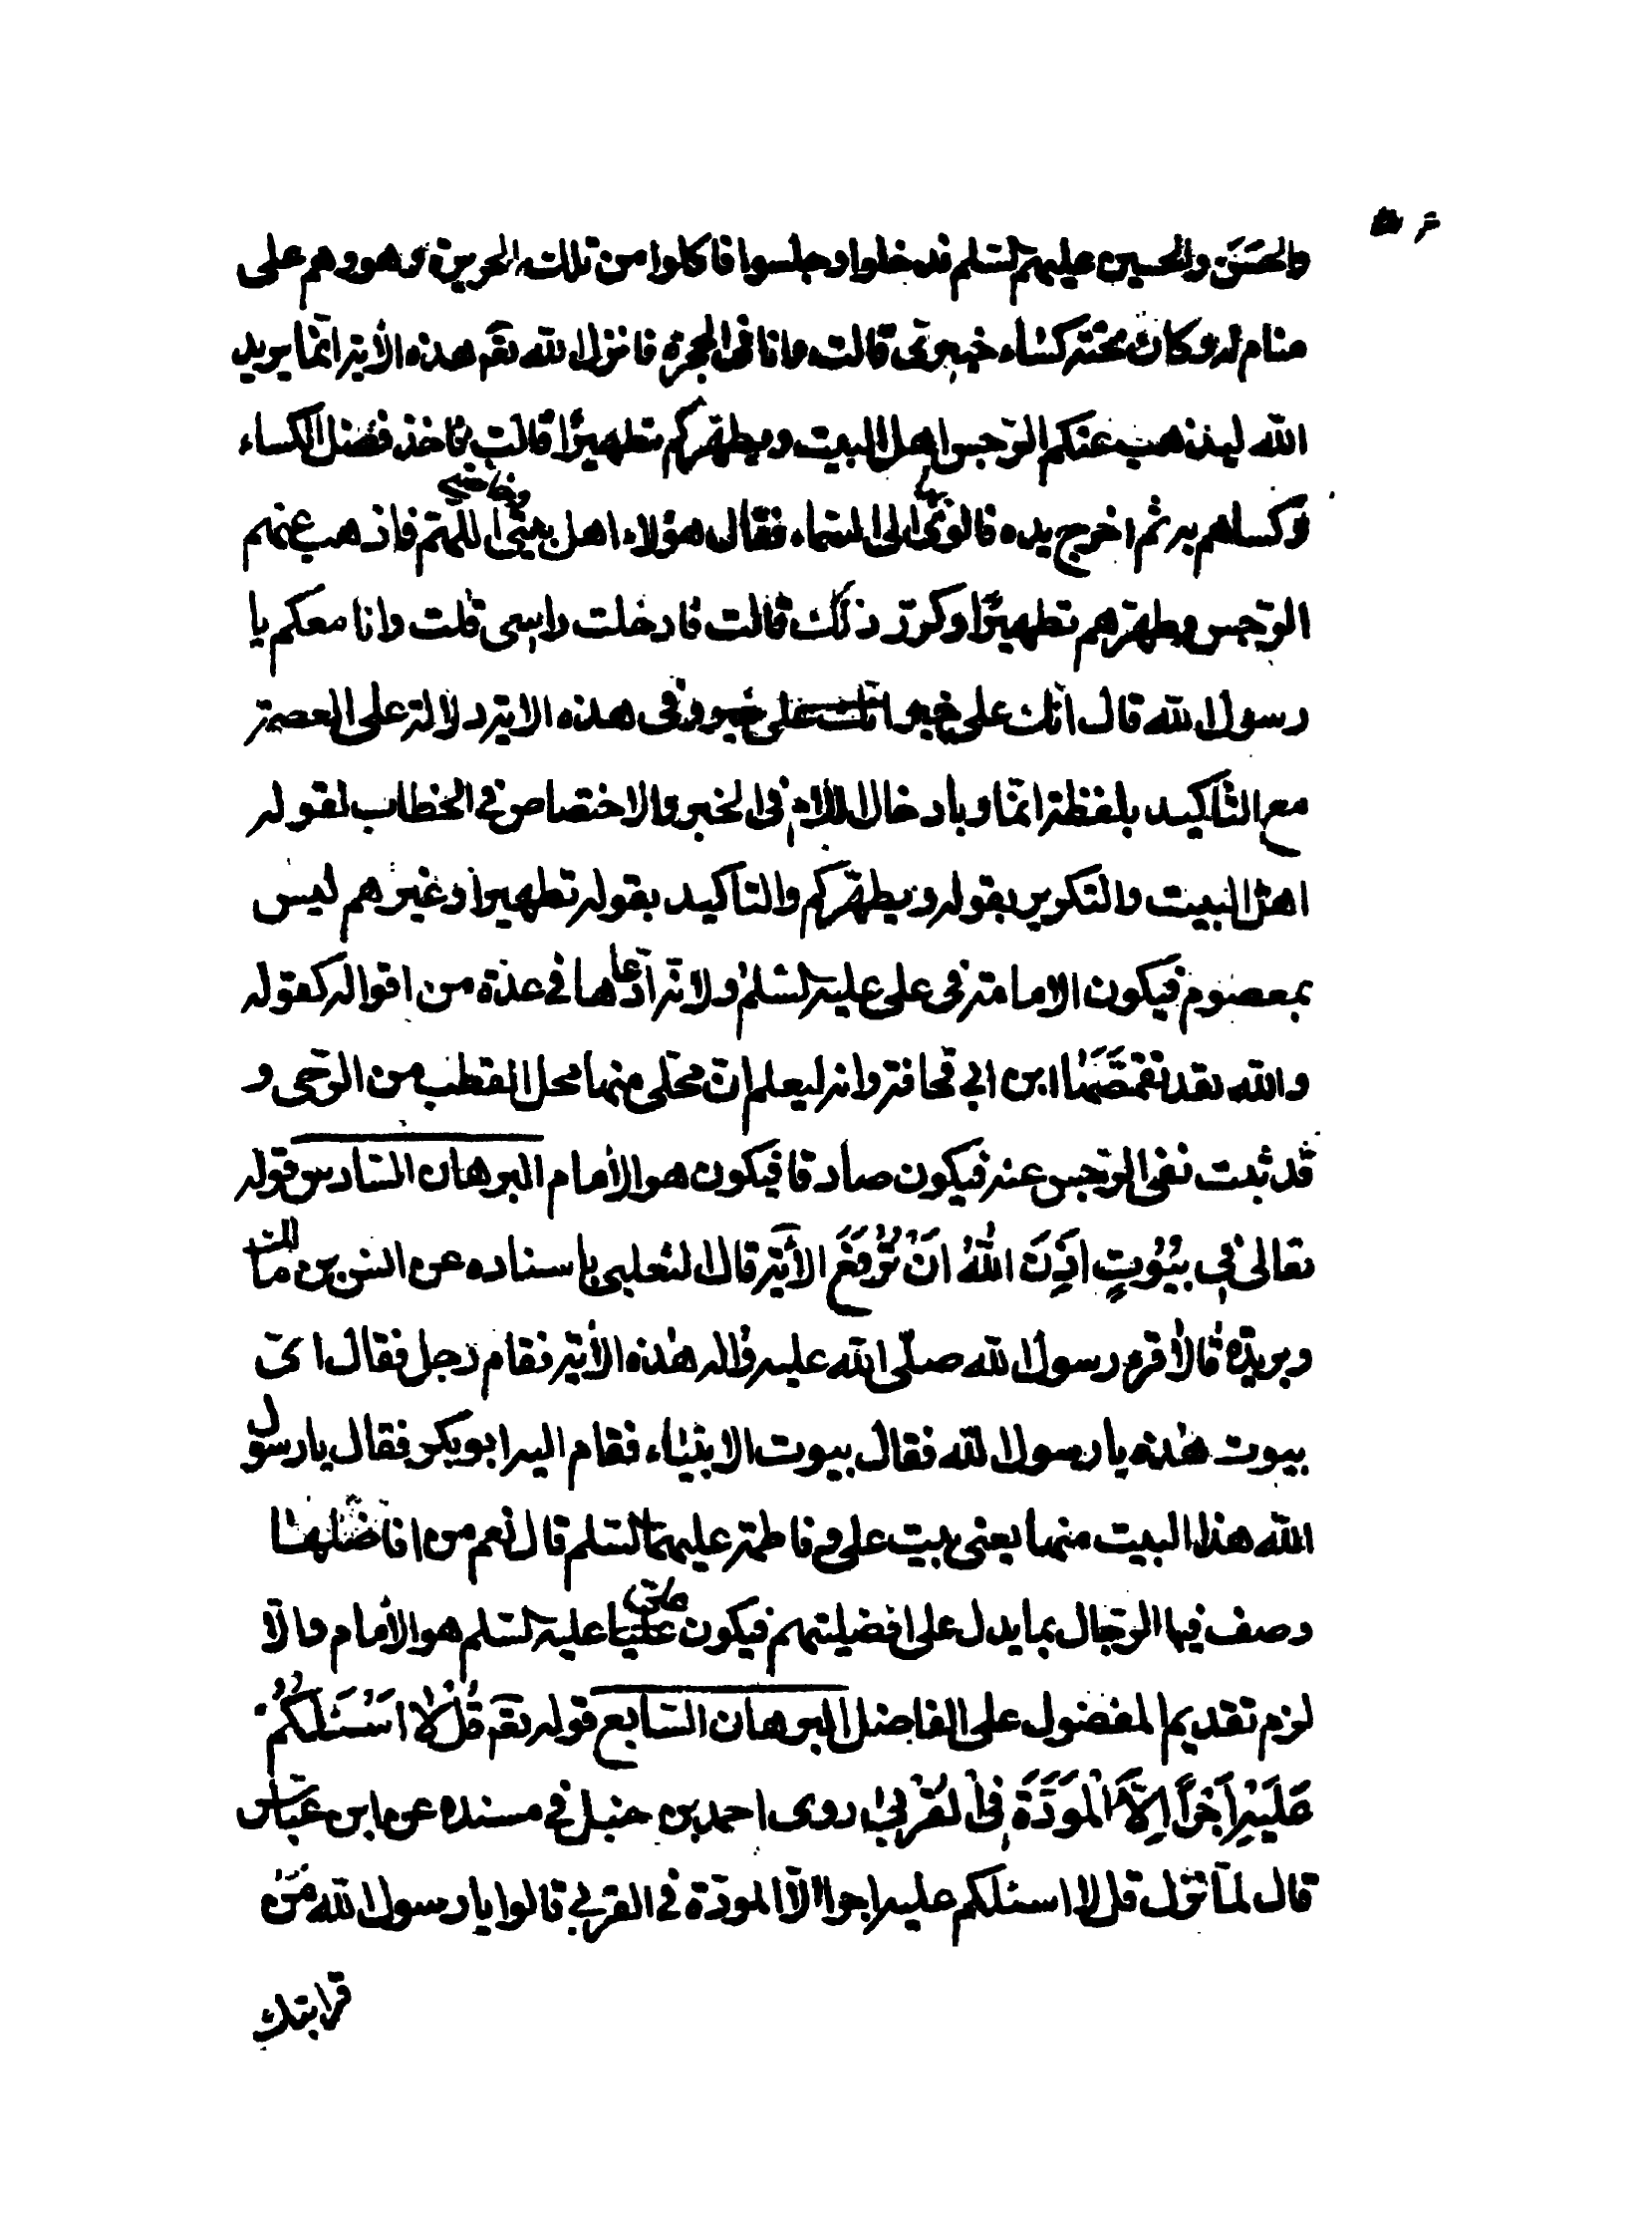 والحسَن والحسين عليهم السلم فدخلوا وجلسوا فاكلوا من تلك الحريرة وهو وهم على
منام له وكان تحته كساء خيبرى قالت وانا فى الحجرة فانزل الله تعٓ هذه الاية انّما يريد
الله ليذهب عنكم الرّجس اهل البيت ويطهّركم تطهيرًا قالت فاخذ فضل الكساء
وكساهم به ثم اخرج يده فالوى بها الى السّماء فقال هؤلاء اهل بيتى وخاصتى اللهمّ فاذهب عنهم
الرّجس وطهّرهم تطهيرًا وكرّر ذلك قالت فادخلت راسى قلت وانا معكم يا
رسول الله قال انّك على خير انّك على خير وفى هذه الاية دلالة على العصمة
مع التّأكيد بلفظة انّما وبادخال اللام فى الخبر والاختصاص فى الخطاب لقوله
اهل البيت والتكرير بقوله ويطهّركم والتاكيد بقوله تطهيرا وغيرهم ليس
بمعصوم فيكون الامامة فى على عليه السّلم ولانّه ادّعاها فى عدّة من اقواله كقوله
والله لقد تقمّصَها ابن ابي قحافة وانه ليعلم انّ محلّى منها محل القطب من الرّحى و
قد ثبت نفى الرّجس عنه فيكون صادقا فيكون هو الامام البرهان السّادس قوله
تعالى فِى بُيُوتٍ اَذِنَ اللهُ اَنْ تُرْفَعَ الاٰية قال الثعلبى باسناده عن انس بن مالك
وبريدة قالا قرء رسول الله صلّى الله عليه واٰله هذه الاٰية فقام رجل فقال اىّ
بيوت هذه يا رسول الله فقال بيوت الانبياء فقام اليه ابو بكر فقال يا رسول
الله هذا البيت منها يعنى بيت على وفاطمة عليهما السّلم قال نعم من افاضلها
وصف فيها الرّجال بما يدل على افضليتهم فيكون علىّ عليه السّلم هو الامام والاّ
لزم تقديم المفضول على الفاضل البرهان السّابع قوله تعٓ قُلْ لاٰ اَسْئَلُكُمْ
عَلَيْهِ اَجْرًا اِلاَّ الْمَوَدَّةَ فِى الْقُرْبىٰ روى احمد بن حنبل فى مسنده عن ابن عبّاس
قال لمّا نزل قل لا اسئلكم عليه اجرا الاّ المودّة فى القربى قالوا يا رسول الله من
قرابتك